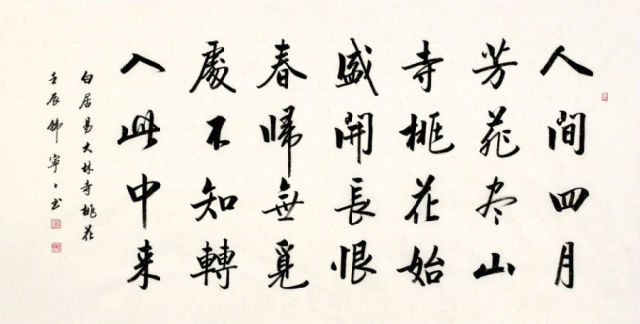 人間四月
芳菲尽山
寺桃花始
盛開長恨
春歸無覓
處不知轉
入此中来
白居易大林寺桃花
壬辰 寧书